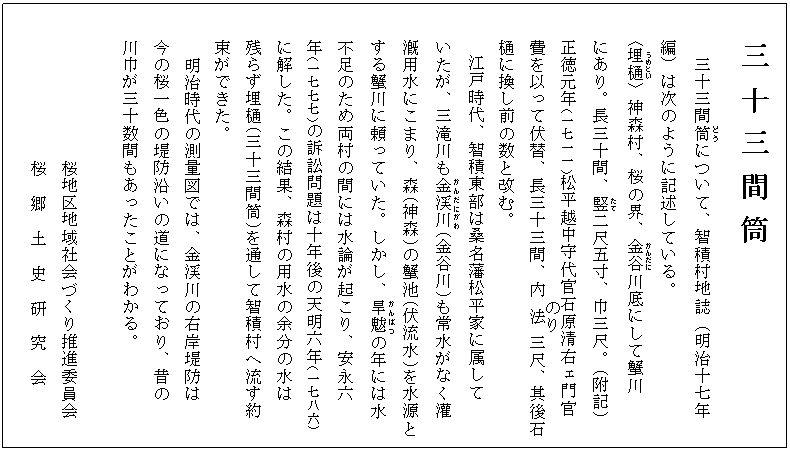 三十三間筒
三十三間筒について、智積村地誌（明治十七年
編）は次のように記述している。
（埋樋）神森村、桜の界、金谷川底にして蟹川
にあり。長三十間、竪二尺五寸、巾三尺。（附記）
正徳元年(一七一一)松平越中守代官石原清右ェ門官
費を以って伏替、長三十三間、内法三尺、其後石
樋に換し前の数と改む。
江戸時代、智積東部は桑名藩松平家に属して
いたが、三滝川も金渓川(金谷川)も常水がなく灌
漑用水にこまり、森(神森)の蟹池(伏流水)を水源と
する蟹川に頼っていた。しかし、旱魃の年には水
不足のため両村の間には水論が起こり、安永六
年(一七七七)の訴訟問題は十年後の天明六年(一七八六)
に解した。この結果、森村の用水の余分の水は
残らず埋樋(三十三間筒)を通して智積村へ流す約
束ができた。
明治時代の測量図では、金渓川の右岸堤防は
今の桜一色の堤防沿いの道になっており、昔の
川巾が三十数間もあったことがわかる。
桜地区地域社会づくり推進委員会
桜郷土史研究会